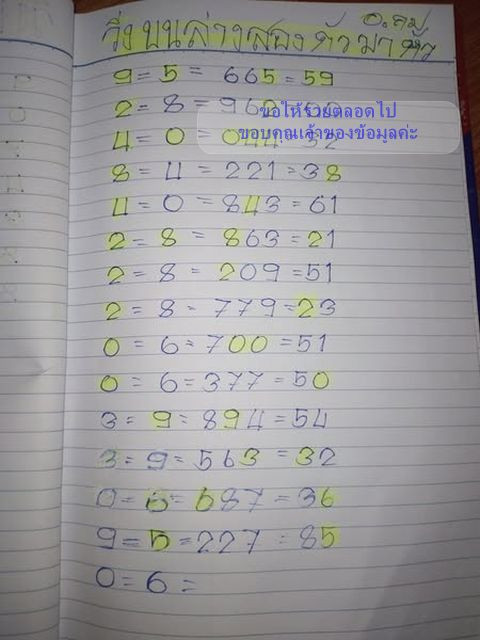 อ.ลม
วิ่งบนล่างสองตัวมาตัว
9 = 5 = 665 = 59
2 = 8 = 962
ขอให้รวยตลอดไป
4 = 0 = 044 = 32
ขอบคุณเจ้าของข้อมูลค่ะ
8 = 4 = 221 = 38
4 = 0 = 843 = 61
2 = 8 = 863 = 21
2 = 8 = 209 = 51
2 = 8 = 779 = 23
0 = 6 = 700 = 51
0 = 6 = 377 = 50
3 = 9 = 894 = 54
3 = 9 = 563 = 32
0 = 6 = 687 = 36
9 = 5 = 227 = 85
0 = 6 =